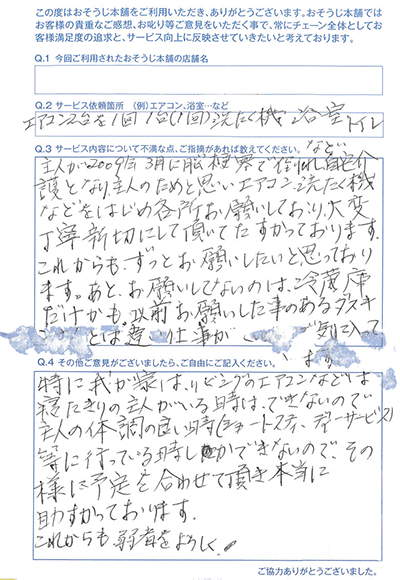 この度はおそうじ本舗をご利用いただき、ありがとうございます。おそうじ本舗では
お客様の貴重なご感想、お叱り等ご意見をいただく事で、常にチェーン全体としてお
客様満足度の追求と、サービス向上に反映させていきたいと考えております。
Q.1 今回ご利用されたおそうじ本舗の店舗名
Q.2 サービス依頼箇所 (例)エアコン、浴室…など
エアコン2台を1回 1台(1回) 洗たく機 浴室 トイレ
など
Q.3 サービス内容について不満な点、ご指摘があれば教えてください。
主人が2009年3月に脳梗塞で倒れ自宅介
護となり、主人のためと思いエアコン、洗たく機
などをはじめ各所お願いしており、大変
丁寧、親切にして頂いてたすかっております。
これからも、ずっとお願いしたいと思っており
ます。あと、お願いしてないのは、冷蔵庫
だけかも。以前お願いした事のあるダスキ
とは違 仕事が 気に入って
Q.4 その他ご意見がございましたら、ご自由にご記入ください。
特に我が家は、リビングのエアコンなどは
寝たきりの主人がいる時は、できないので
主人の体調の良い時(ショートステイ、デイサービス)
等に行っている時しかできないので、その
様に予定を合わせて頂き本当に
助すかっております。
これからも弱者をよろしく。
ご協力ありがとうございました。